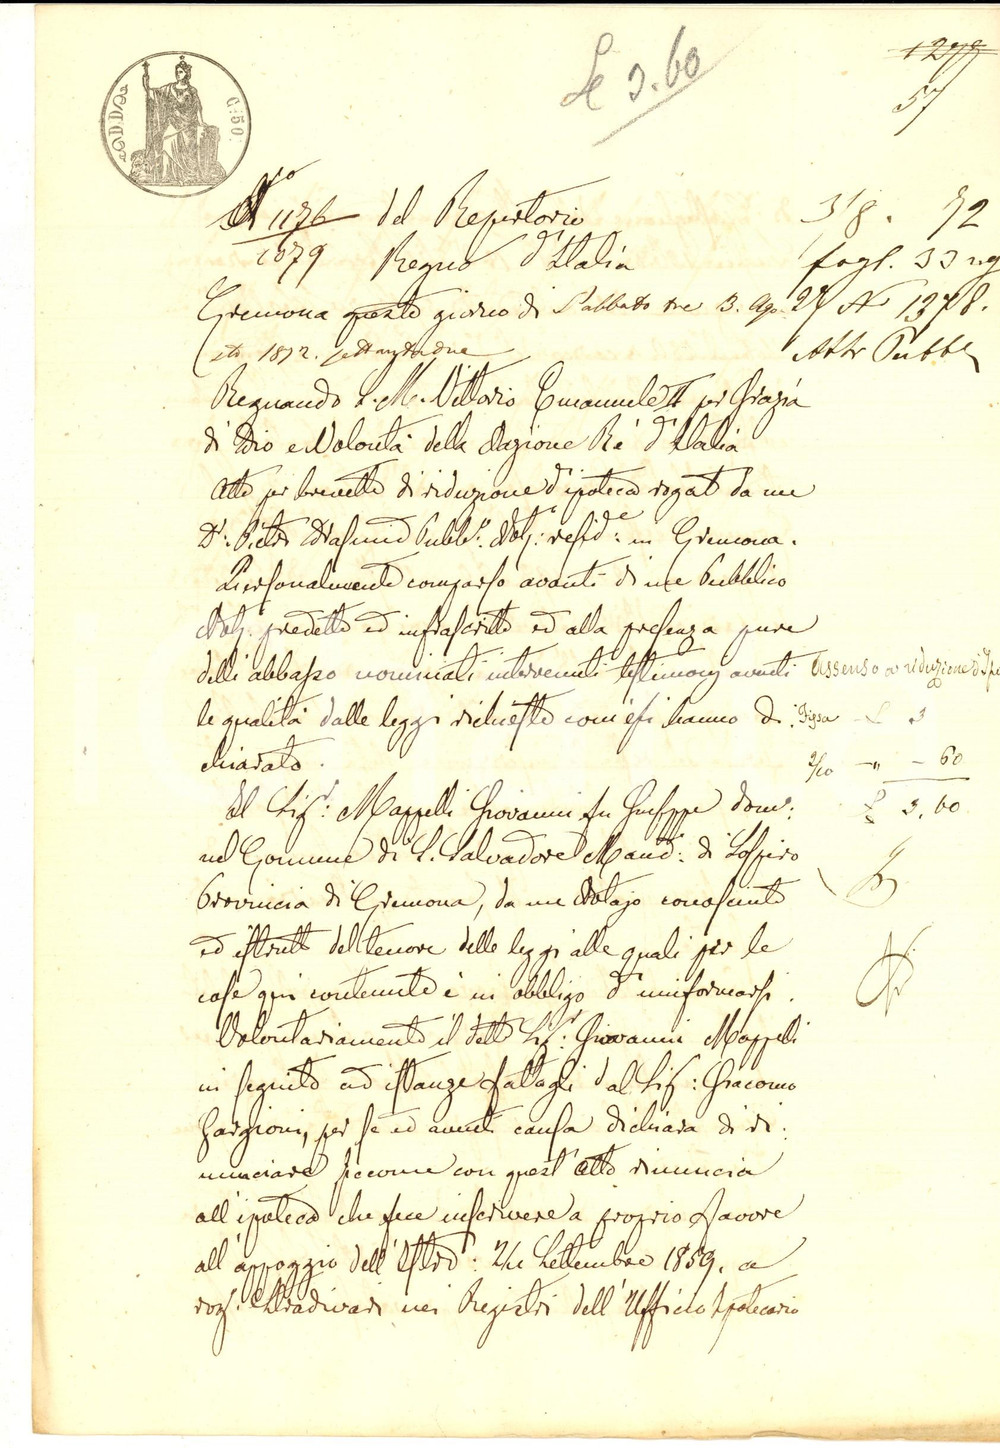 £ 3.60
1278
57
C: 50.
N.ro 1176 del Repertorio
1079 Regno d'Italia
3/8. 72
fogl. 33
27 N 1378.
Atti Pubbl
Cremona questo giorno di Sabbato tre 3. Ago
sto 1872. settantadue
Regnando S. M. Vittorio Emanuele II per Grazia
di Dio e Volontà della Nazione Rè d'Italia
Atto per brevetto di riduzione d'ipoteca rogat. da me
D.r Pietro Pubb.o Not.o resid.e in Cremona.
Personalmente comparso avanti di me Pubblico
Not.o predetto ed infrascritto ed alla presenza pure
delli abbasso nominati intervenuti testimonj aventi
le qualità dalle leggi richieste com'essi hanno di
chiarato.
Assenso a riduzione d'Ipo
Fissa £ 3
2/10 - " - 60
£ 3.60
Il Sig.r Mappelli Giovanni fu Giuseppe dom.o
nel Comune di S. Salvadore Mand.o di Sospiro
Provincia di Cremona, da me Notajo conosciuto
ed istrutto del tenore delle leggi alle quali per le
cose qui contenute è in obbligo d'uniformarsi.
Volontariamente il detto Sig.r Giovanni Mappelli
in seguito ad istanze fattagli dal Sig.r Giacomo
Gargioni, per se ed aventi causa dichiara di ri
nunciare siccome con quest'atto rinuncia
all'ipoteca che fece inscrivere a proprio favore
all'appoggio dell'Istro.o Settembre 1859. a
rog.o Stradivari nei Registri dell'Ufficio Ipotecario